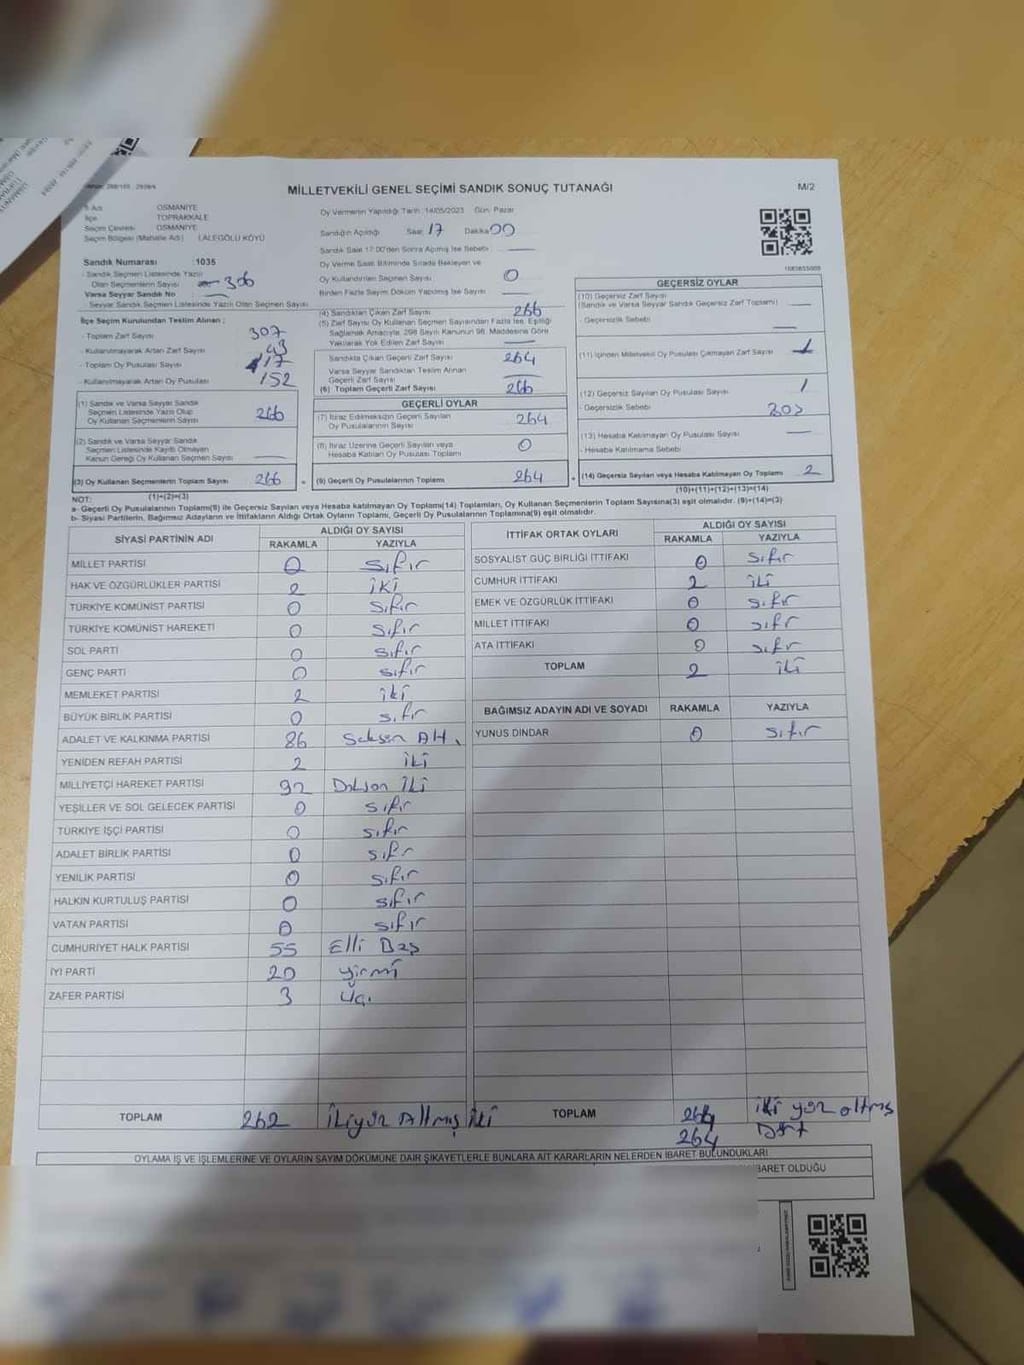 MİLLETVEKİLİ GENEL SEÇİMİ SANDIK SONUÇ TUTANAĞI
M/2
İl Adı OSMANİYE
İlçe TOPRAKKALE
Seçim Çevresi OSMANİYE
Seçim Bölgesi (Mahalle Adı) LALEGÖLÜ KÖYÜ
Sandık Numarası :1035
- Sandık Seçmen Listesinde Yazılı
Olan Seçmenlerin Sayısı 306
Varsa Seyyar Sandık No
Seyyar Sandık Seçmen Listesinde Yazılı Olan Seçmen Sayısı
İlçe Seçim Kurulundan Teslim Alınan ;
- Toplam Zarf Sayısı 307
- Kullanılmayarak Artan Zarf Sayısı 43
- Toplam Oy Pusulası Sayısı
- Kullanılmayarak Artan Oy Pusulası 152
(1) Sandık ve Varsa Seyyar Sandık
Seçmen Listesinde Yazılı Olup
Oy Kullanan Seçmenlerin Sayısı 266
(2) Sandık ve Varsa Seyyar Sandık
Seçmen Listesinde Kayıtlı Olmayan
Kanun Gereği Oy Kullanan Seçmen Sayısı
(3) Oy Kullanan Seçmenlerin Toplam Sayısı 266
(1)+(2)=(3)
Oy Vermenin Yapıldığı Tarih :14/05/2023 Gün: Pazar
Sandığın Açıldığı Saat 17 Dakika 00
Sandık Saat 17:00'den Sonra Açılmış İse Sebebi
Oy Verme Saati Bitiminde Sırada Bekleyen ve
Oy Kullandırılan Seçmen Sayısı 0
Birden Fazla Sayım Döküm Yapılmış İse Sayısı
(4) Sandıktan Çıkan Zarf Sayısı 266
(5) Zarf Sayısı Oy Kullanan Seçmen Sayısından Fazla İse, Eşitliği
Sağlamak Amacıyla, 298 Sayılı Kanunun 98. Maddesine Göre
Yakılarak Yok Edilen Zarf Sayısı
Sandıkta Çıkan Geçerli Zarf Sayısı 264
Varsa Seyyar Sandıktan Teslim Alınan
Geçerli Zarf Sayısı
(6) Toplam Geçerli Zarf Sayısı 266
GEÇERLİ OYLAR
(7) İtiraz Edilmeksizin Geçerli Sayılan
Oy Pusulalarının Sayısı 264
(8) İtiraz Üzerine Geçerli Sayılan veya
Hesaba Katılan Oy Pusulası Toplamı 0
(9) Geçerli Oy Pusulalarının Toplamı 264
1083835009
GEÇERSİZ OYLAR
(10) Geçersiz Zarf Sayısı
(Sandık ve Varsa Seyyar Sandık Geçersiz Zarf Toplamı)
- Geçersizlik Sebebi
(11) İçinden Milletvekili Oy Pusulası Çıkmayan Zarf Sayısı 1
(12) Geçersiz Sayılan Oy Pusulası Sayısı 1
- Geçersizlik Sebebi
(13) Hesaba Katılmayan Oy Pusulası Sayısı
- Hesaba Katılmama Sebebi
(14) Geçersiz Sayılan veya Hesaba Katılmayan Oy Toplamı 2
(10)+(11)+(12)+(13)=(14)
NOT:
a- Geçerli Oy Pusulalarının Toplamı(9) ile Geçersiz Sayılan veya Hesaba katılmayan Oy Toplamı(14) Toplamları, Oy Kullanan Seçmenlerin Toplam Sayısına(3) eşit olmalıdır. (9)+(14)=(3)
b- Siyasi Partilerin, Bağımsız Adayların ve İttifakların Aldığı Ortak Oyların Toplamı, Geçerli Oy Pusulalarının Toplamına(9) eşit olmalıdır.
SİYASİ PARTİNİN ADI ALDIĞI OY SAYISI
RAKAMLA YAZIYLA
MİLLET PARTİSİ 0 sıfır
HAK VE ÖZGÜRLÜKLER PARTİSİ 2 iki
TÜRKİYE KOMÜNİST PARTİSİ 0 sıfır
TÜRKİYE KOMÜNİST HAREKETİ 0 sıfır
SOL PARTİ 0 sıfır
GENÇ PARTİ 0 sıfır
MEMLEKET PARTİSİ 2 iki
BÜYÜK BİRLİK PARTİSİ 0 sıfır
ADALET VE KALKINMA PARTİSİ 86 Seksen Altı
YENİDEN REFAH PARTİSİ 2 iki
MİLLİYETÇİ HAREKET PARTİSİ 92 Doksan iki
YEŞİLLER VE SOL GELECEK PARTİSİ 0 sıfır
TÜRKİYE İŞÇİ PARTİSİ 0 sıfır
ADALET BİRLİK PARTİSİ 0 sıfır
YENİLİK PARTİSİ 0 sıfır
HALKIN KURTULUŞ PARTİSİ 0 sıfır
VATAN PARTİSİ 0 sıfır
CUMHURİYET HALK PARTİSİ 55 Elli Beş
İYİ PARTİ 20 yirmi
ZAFER PARTİSİ 3 üç
TOPLAM 262 ikiyüz Altmış iki
İTTİFAK ORTAK OYLARI ALDIĞI OY SAYISI
RAKAMLA YAZIYLA
SOSYALİST GÜÇ BİRLİĞİ İTTİFAKI 0 sıfır
CUMHUR İTTİFAKI 2 iki
EMEK VE ÖZGÜRLÜK İTTİFAKI 0 sıfır
MİLLET İTTİFAKI 0 sıfır
ATA İTTİFAKI 0 sıfır
TOPLAM 2 iki
BAĞIMSIZ ADAYIN ADI VE SOYADI RAKAMLA YAZIYLA
YUNUS DİNDAR 0 sıfır
TOPLAM 264 iki yüz altmış
264 Dört
OYLAMA İŞ VE İŞLEMLERİNE VE OYLARIN SAYIM DÖKÜMÜNE DAİR ŞİKAYETLERLE BUNLARA AİT KARARLARIN NELERDEN İBARET BULUNDUKLARI
İBARET OLDUĞU